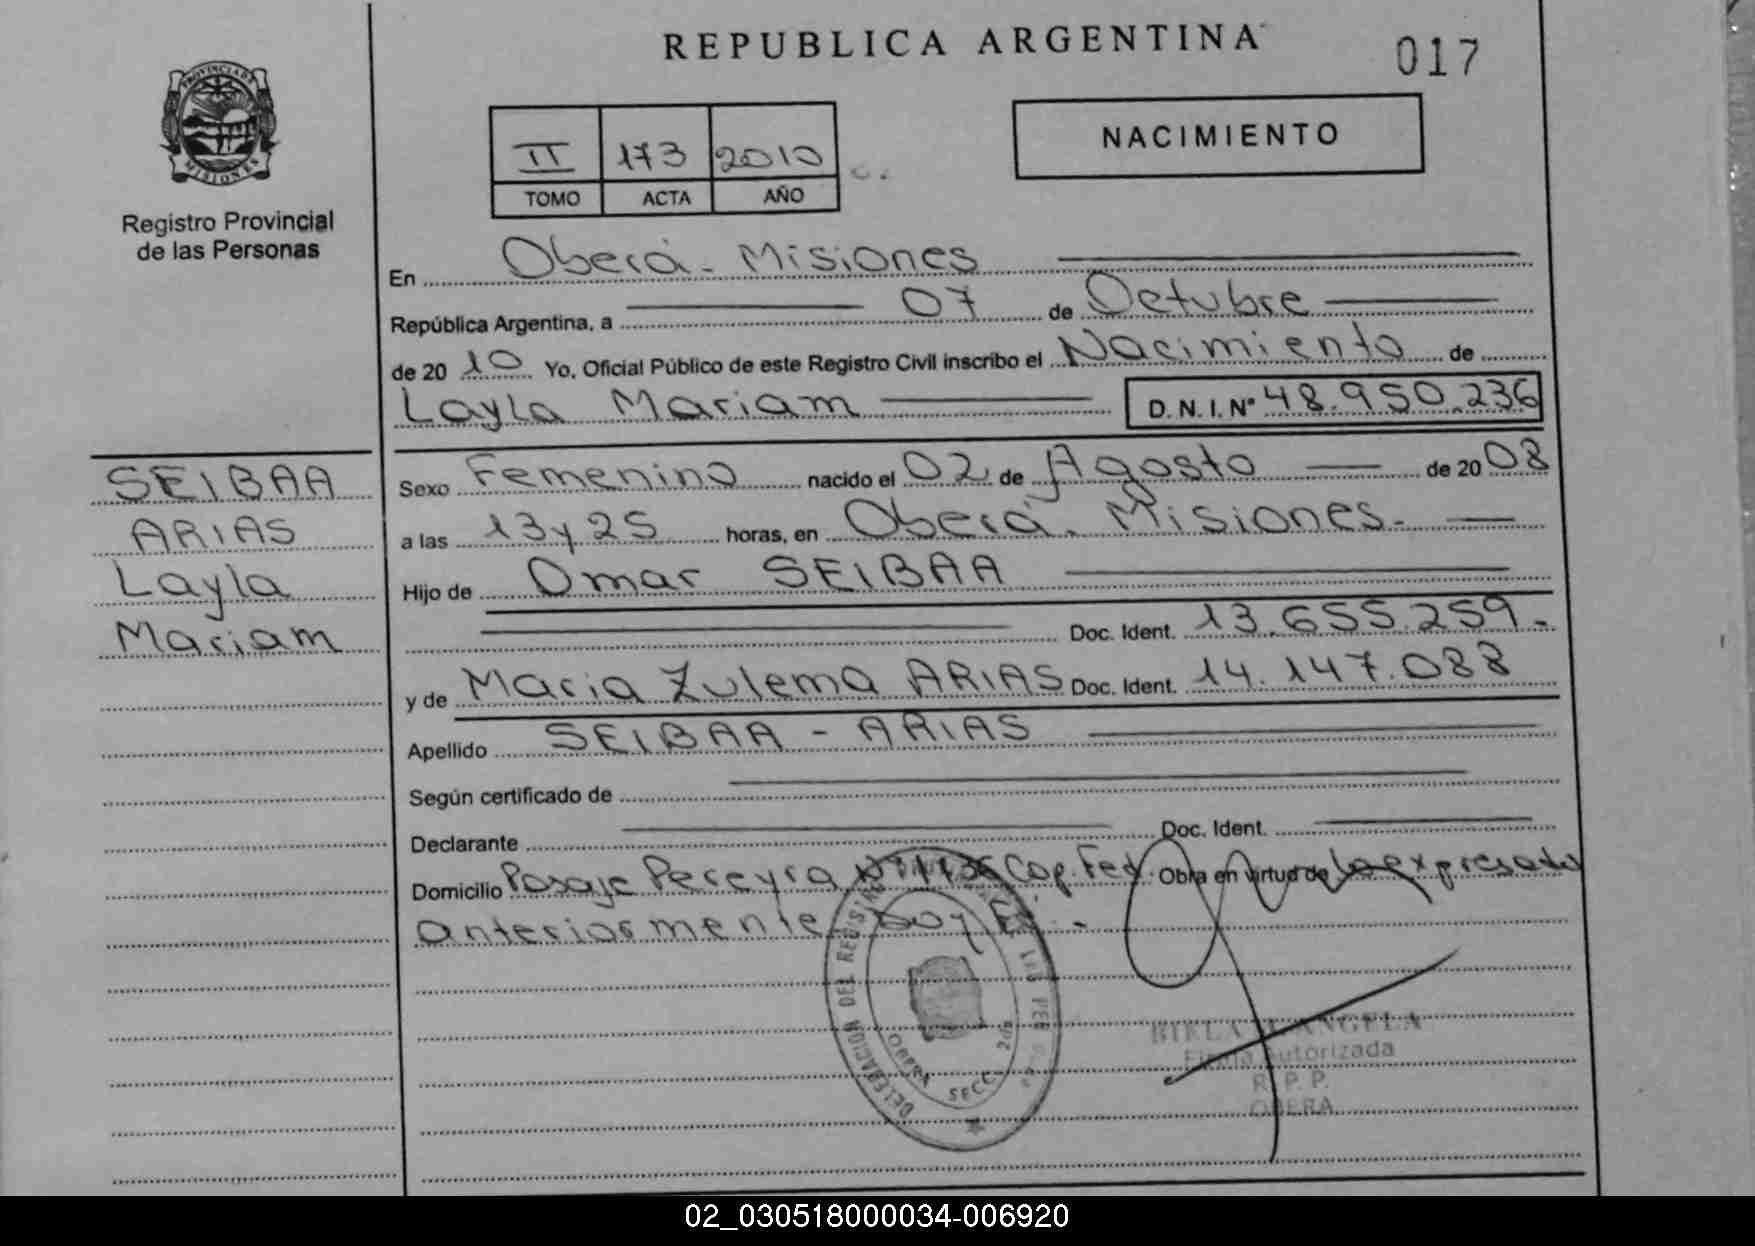 REPUBLICA ARGENTINA
017
PROVINCIA DE
MISIONES
Registro Provincial
de las Personas
II 173 2010
TOMO ACTA AÑO
NACIMIENTO
En Oberá - Misiones
República Argentina, a 07 de Octubre
de 2010 Yo, Oficial Público de este Registro Civil inscribo el Nacimiento de
Layla Mariam D.N.I.Nº 48.950.236
SEIBAA
ARIAS
Layla
Mariam
Sexo Femenino nacido el 02 de Agosto de 2008
a las 13 y 25 horas, en Oberá. Misiones.
Hijo de Omar SEIBAA
Doc. Ident. 13.655.259.
y de Maria Zulema ARIAS Doc. Ident. 14.147.088
Apellido SEIBAA - ARIAS
Según certificado de
Declarante Doc. Ident.
Domicilio Pasaje Pereyra Cap. Fed. Obra en virtud de lo expresado
anteriormente Doy Fé.
DELEGACION DEL REGISTRO DE LAS PER
OBERA SECC. 2da
ANGELA
Firma Autorizada
R. P. P.
OBERA
02_030518000034-006920